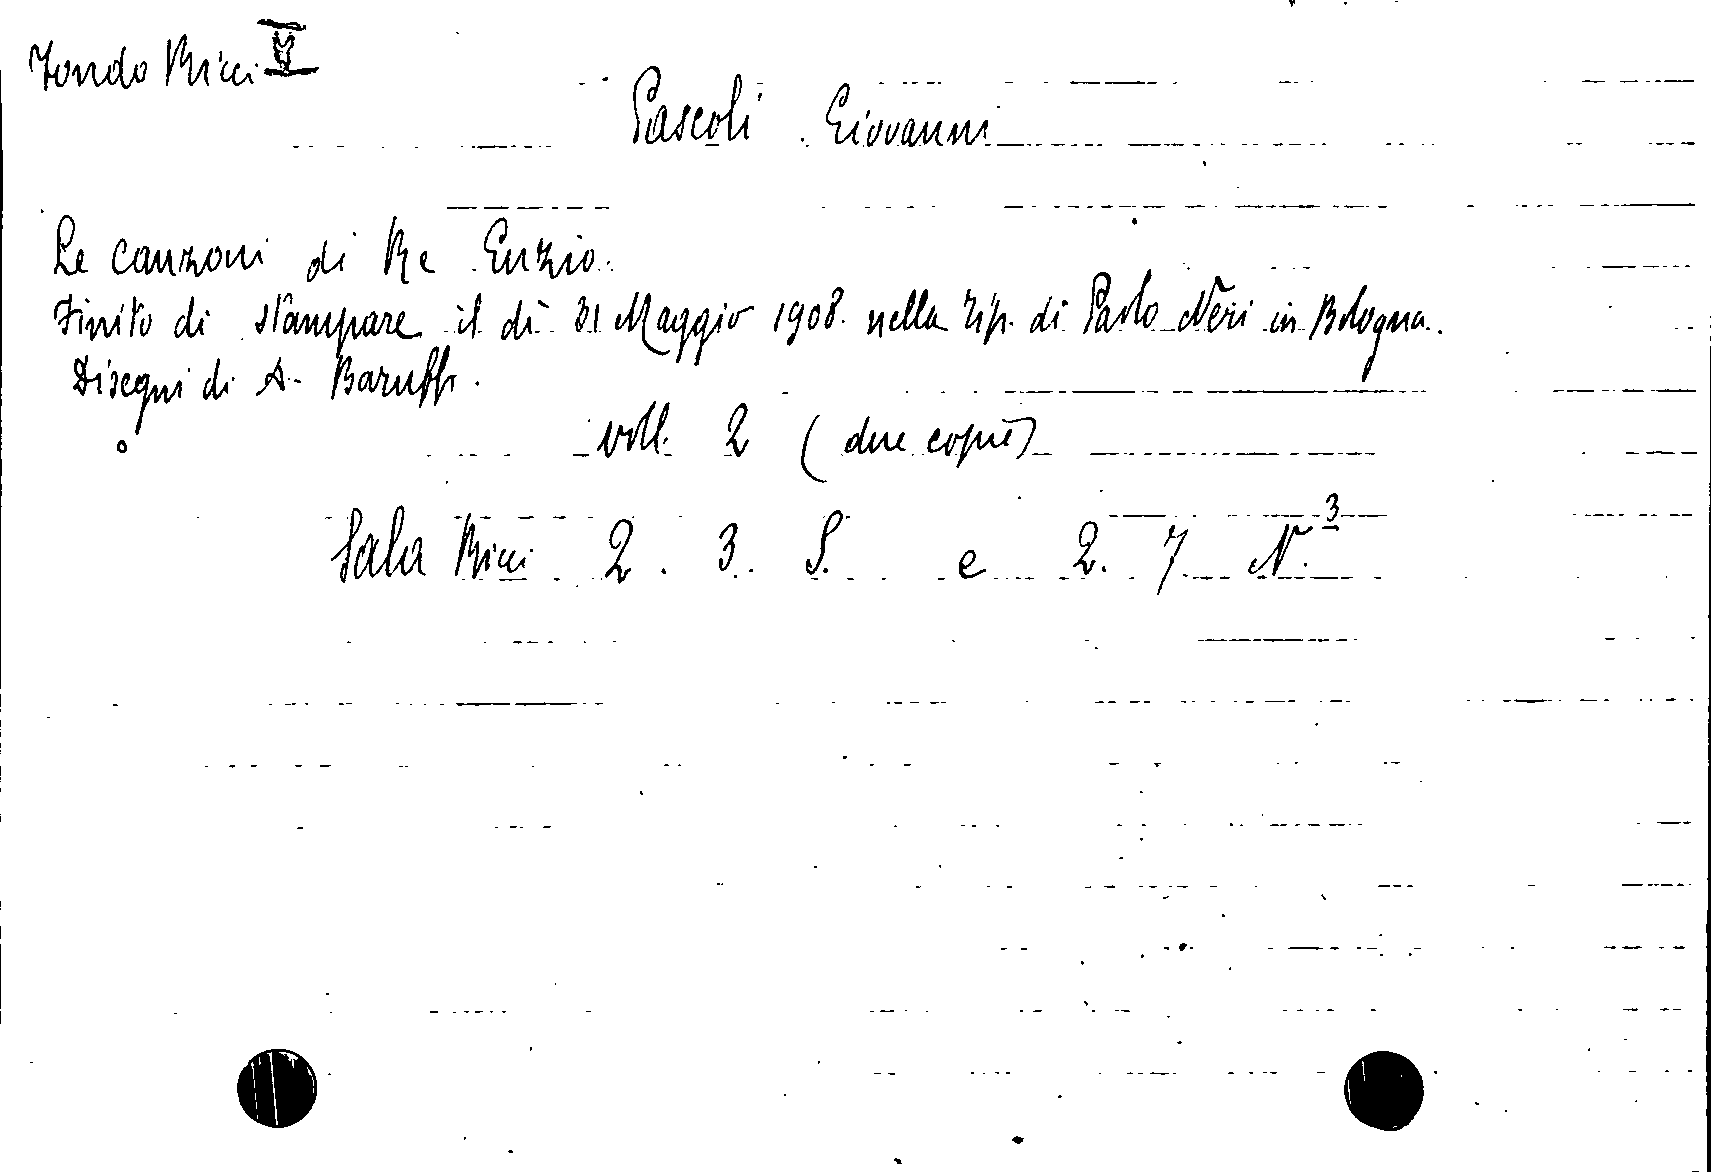 Fondo Ricci V
Pascoli Giovanni
Le canzoni di Re Enzio.
Finito di stampare il dì 31 Maggio 1908. nella Tip. di Paolo Neri in Bologna.
Disegni di A. Baruffi.
voll. 2 (due copie)
Sala Ricci 2. 3. S. e 2. 7 N. 3